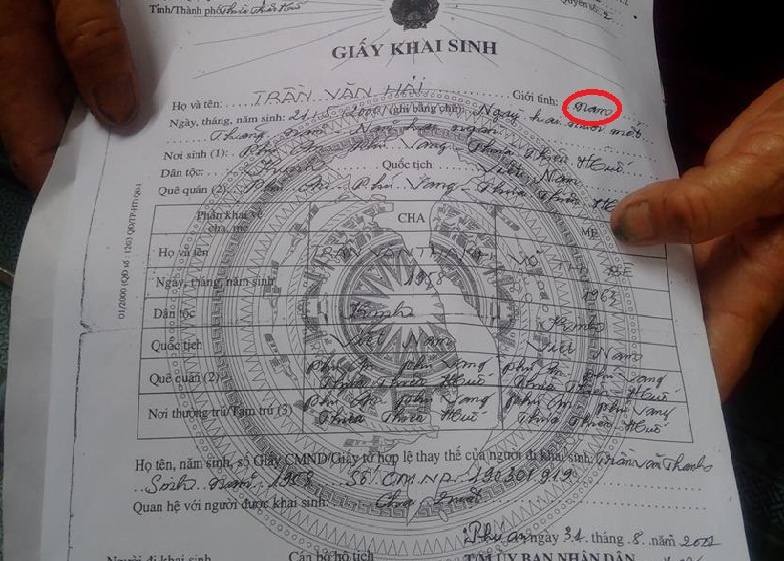 Tỉnh/Thành phố Thừa Thiên Huế Quyển số: 2
GIẤY KHAI SINH
Họ và tên: TRẦN VĂN HẢI Giới tính: nam
Ngày, tháng, năm sinh: 21.5.2000 (ghi bằng chữ) Ngày hai mươi mốt
Tháng năm Năm hai ngàn
Nơi sinh (1): Phú An Phú Vang Thừa Thiên Huế
Dân tộc: Kinh Quốc tịch Việt Nam
Quê quán (2) Phú An Phú Vang Thừa Thiên Huế
Phần khai về cha, mẹ CHA MẸ
Họ và tên TRẦN VĂN VÕ THỊ BÉ
Ngày, tháng, năm sinh 1958 1963
Dân tộc Kinh Kinh
Quốc tịch Việt Nam Việt Nam
Quê quán (2) Phú An Phú Vang Thừa Thiên Huế Phú An Phú Vang Thừa Thiên Huế
Nơi thường trú/Tạm trú (3) Phú An Phú Vang Thừa Thiên Huế Phú An Phú Vang Thừa Thiên Huế
Họ tên, năm sinh, số Giấy CMND/Giấy tờ hợp lệ thay thế của người đi khai sinh: Trần văn
Sinh năm 1958 Số CMND 190301919
Quan hệ với người được khai sinh: Cha
Phú An ngày 31 tháng 8 năm
Người đi khai sinh Cán bộ hộ tịch T/M ỦY BAN NHÂN DÂN